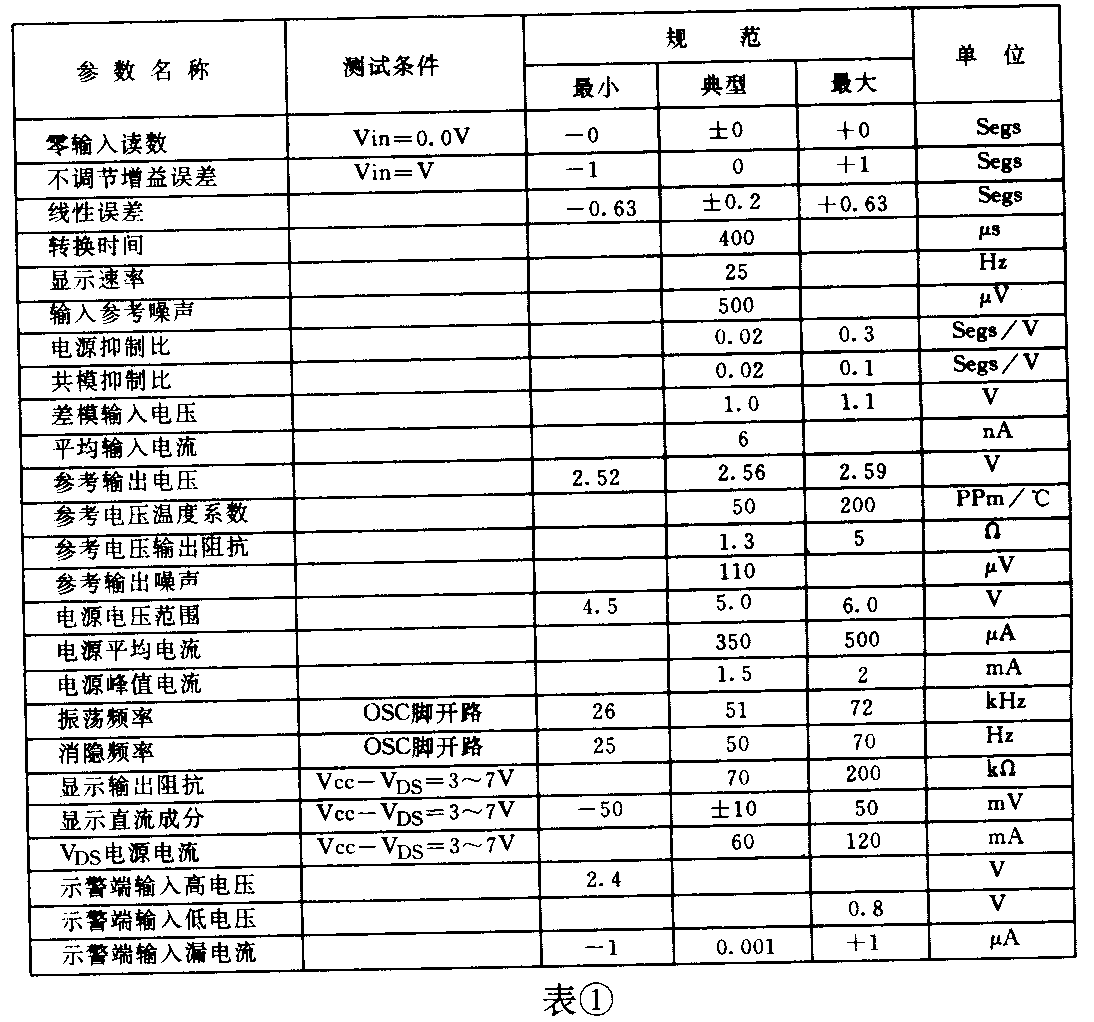 参数名称 测试条件 规 范 单 位
最小 典型 最大
零输入读数 Vin=0.0V -0 ±0 +0 Segs
不调节增益误差 Vin=V -1 0 +1 Segs
线性误差 -0.63 ±0.2 +0.63 Segs
转换时间 400 μs
显示速率 25 Hz
输入参考噪声 500 μV
电源抑制比 0.02 0.3 Segs/V
共模抑制比 0.02 0.1 Segs/V
差模输入电压 1.0 1.1 V
平均输入电流 6 nA
参考输出电压 2.52 2.56 2.59 V
参考电压温度系数 50 200 PPm/℃
参考电压输出阻抗 1.3 5 Ω
参考输出噪声 110 μV
电源电压范围 4.5 5.0 6.0 V
电源平均电流 350 500 μA
电源峰值电流 1.5 2 mA
振荡频率 OSC脚开路 26 51 72 kHz
消隐频率 OSC脚开路 25 50 70 Hz
显示输出阻抗 Vcc-VDS=3~7V 70 200 kΩ
显示直流成分 Vcc-VDS=3~7V -50 ±10 50 mV
VDS电源电流 Vcc-VDS=3~7V 60 120 mA
示警端输入高电压 2.4 V
示警端输入低电压 0.8 V
示警端输入漏电流 -1 0.001 +1 μA
表①